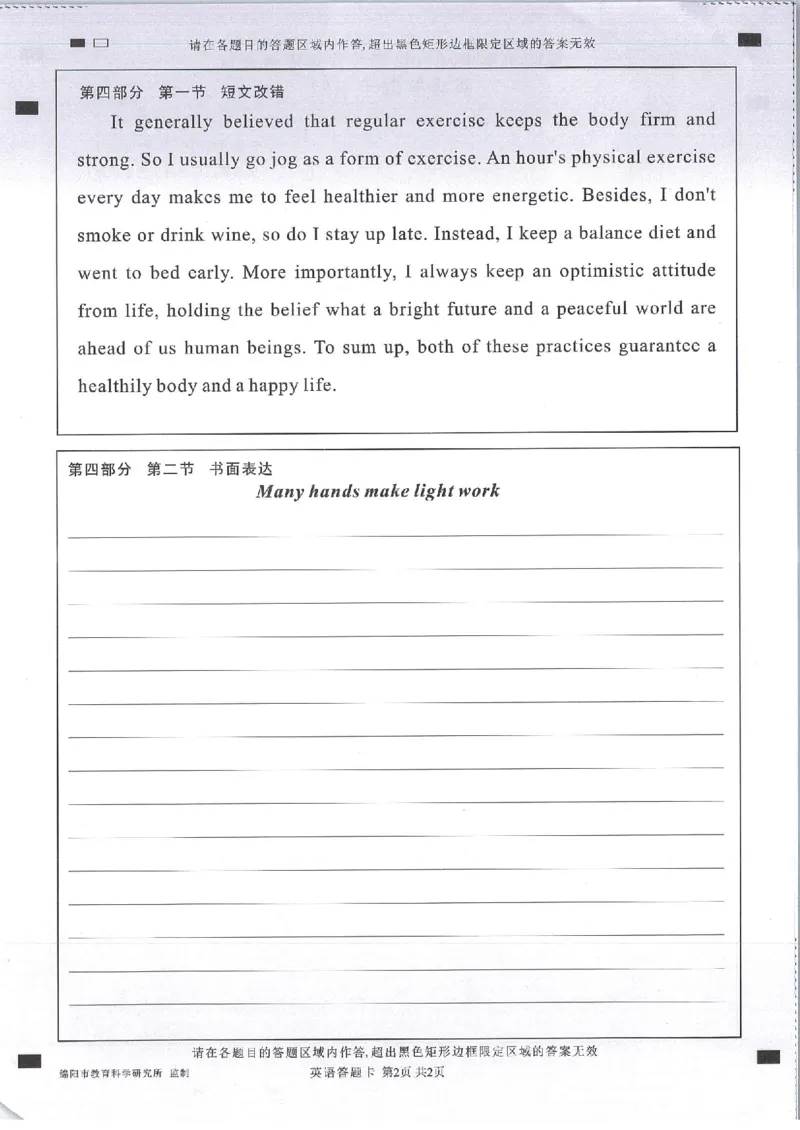 请在各题目的答题区域内作答,超出黑色矩形边框限定区域的答案无效
第四部分 第一节 短文改错
It generally believed that regular exercise keeps the body firm and
strong. So I usually go jog as a form of exercise. An hour's physical exercise
every day makes me to feel healthier and more energetic. Besides, I don't
smoke or drink wine, so do I stay up late. Instead, I keep a balance diet and
went to bed early. More importantly, I always keep an optimistic attitude
from life, holding the belief what a bright future and a peaceful world are
ahead of us human beings. To sum up, both of these practices guarantee a
healthily body and a happy life.
第四部分 第二节 书面表达
Many hands make light work
请在各题目的答题区域内作答,超出黑色矩形边框限定区域的答案无效
绵阳市教育科学研究所 监制
英语答题卡 第2页 共2页